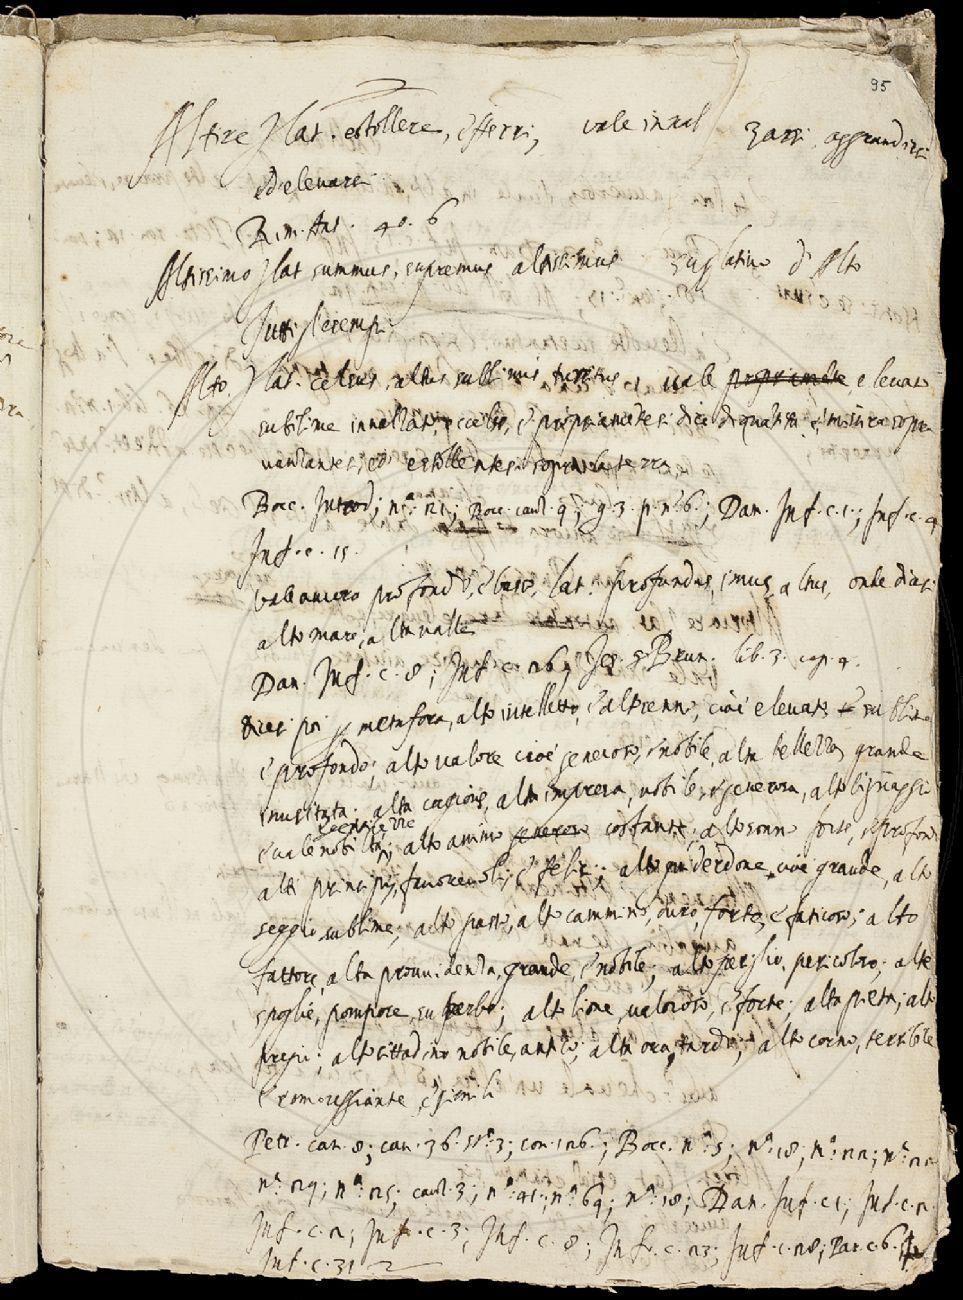 95
Altire lat. estollere, efferri, vale innal zarsi, aggrandirsi
ed elevarsi
Rim. Ant. 40. 6
Altissimo lat summus, supremus altissimus suplativo d'Alto
Tutti gl'esempi
Alto. lat. celsus, altus, sublimis, vale propriamente elevato
sublime innalzato, eccelso, e propriamente si dice di quello
vandantesi, ed estollentesi sopra la terra
Bocc. Introd; n.º 21; Bocc. canz. 9; g. 3. p. n. 6.; Dan. Inf. c. 1.; Inf. c. 4
Inf. c. 15.
vale ancora profondo, e basso, lat. profundus, imus, altus, onde dicesi
alto mare, alta valle
Dan. Inf. c. 8; Inf. c. 26; Brun. lib. 3. cap. 4.
dicesi poi metafora, alto intelletto, e alto senno, cioè elevato e sublime
e profondo; alto valore cioè generoso, e nobile, alta bellezza, grande
inusitata. alta cagione, alta impresa, nobile, e generosa, alto lignaggio
e vale nobiltà; alto animo costante; alto sonno forte, e profondo
alti principi, favorevoli, e felici; alto guiderdone, cioè grande, alto
seggio sublime; alto passo, alto cammino, duro, forte, e faticoso; alto
fattore, alta provvidenza, grande, e nobile; alto periglio, pericoloso; alte
spoglie, pompose, superbe; alto lione, valoroso, e forte; alta pieta; alti
pregi; alto cittadino nobile, antico; alta ora, tarda; alto corno, terribile
e romoreggiante, e simili
Petr. can. 8; can. 36. st. 3; son. 126.; Bocc. n.º 5; n.º 18; n.º 22; n.º
n.º 29; n.º 25; canz. 3; n.º 41; n.º 69; n.º 18; Dan. Inf. c. 1; Inf. c. 2
Inf. c. 2; Inf. c. 3; Inf. c. 8; Inf. c. 23; Inf. c. 28; Par. c. 6.
Inf. c. 31